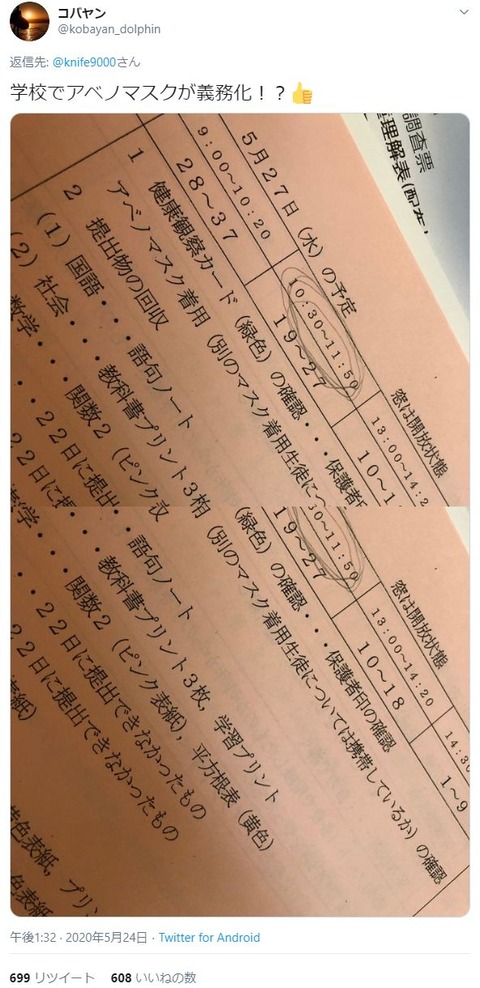 コバヤン
@kobayan_dolphin
返信先: @knife9000さん
学校でアベノマスクが義務化！？👍
調査票
理解表(配布
5月27日（水）の予定
窓は開放状態
9:00～10:20
10:30～11:50
13:00～14:2
28～37
19～27
10～1
1 健康観察カード（緑色）の確認・・・保護者
アベノマスク着用（別のマスク着用生徒に
2 提出物の回収
(1) 国語・・・語句ノート
(2) 社会・・・教科書プリント3枚
数学・・・関数2（ピンク
・・22日に提出
22日に
窓は開放状態
30～11:50
13:00～14:20
14:30
19～27
10～18
1～9
（緑色）の確認・・・保護者印の確認
（別のマスク着用生徒については携帯しているか）の確認
・・語句ノート
・・・教科書プリント3枚，学習プリント
学・・・関数2（ピンク表紙），平方根表（黄色）
・・22日に提出できなかったもの
22日に提出できなかったもの
表紙)
黄色表紙，プリン
色表紙
午後1:32 · 2020年5月24日 · Twitter for Android
699 リツイート 608 いいねの数